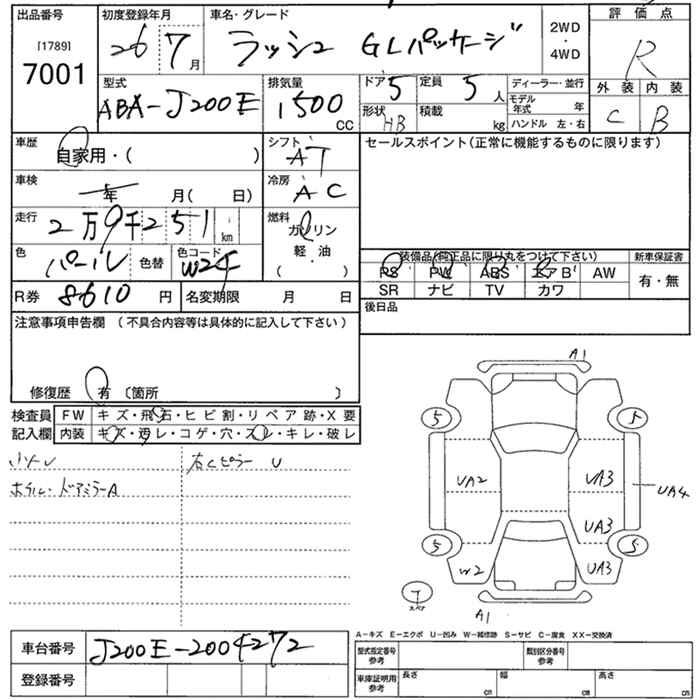 出品番号 初度登録年月 車名・グレード 評価点
[1789] 26 7月 ラッシュ GLパッケージ 2WD・4WD R
7001
型式 排気量 ドア 5 定員 5人 ディーラー・並行 外装 内装
ABA-J200E 1500 CC 形状 HB 積載 kg モデル年式 年 C B
ハンドル 左・右
車歴 自家用・( ) シフト AT セールスポイント(正常に機能するものに限ります)
車検 年 月( 日) 冷房 AC
走行 2万9千251km 燃料 ガソリン・軽油( )
色 パール 色替 色コード W24 装備品(純正品に限り丸をつけて下さい) 新車保証書
PS PW ABS エアB AW 有・無
R券 8610円 名変期限 月 日 SR ナビ TV カワ
注意事項申告欄 (不具合内容等は具体的に記入して下さい) 後日品
修復歴 有 〔箇所 〕
検査員 FW キズ・飛石・ヒビ割・リペア跡・X要
記入欄 内装 キズ・汚レ・コゲ・穴・スレ・キレ・破レ
右Cピラー U
ホイル・ドアミラーA
A1
5 5
UA2 UA3 UA4
UA3
5 5
W2 UA3
T スペア
A1
A-キズ E-エクボ U-凹み W-補修跡 S-サビ C-腐食 XX-交換済
車台番号 J200E-2004272 型式指定番号 参考 類別区分番号 参考
登録番号 車庫証明用 参考 長さ cm 幅 cm 高さ cm